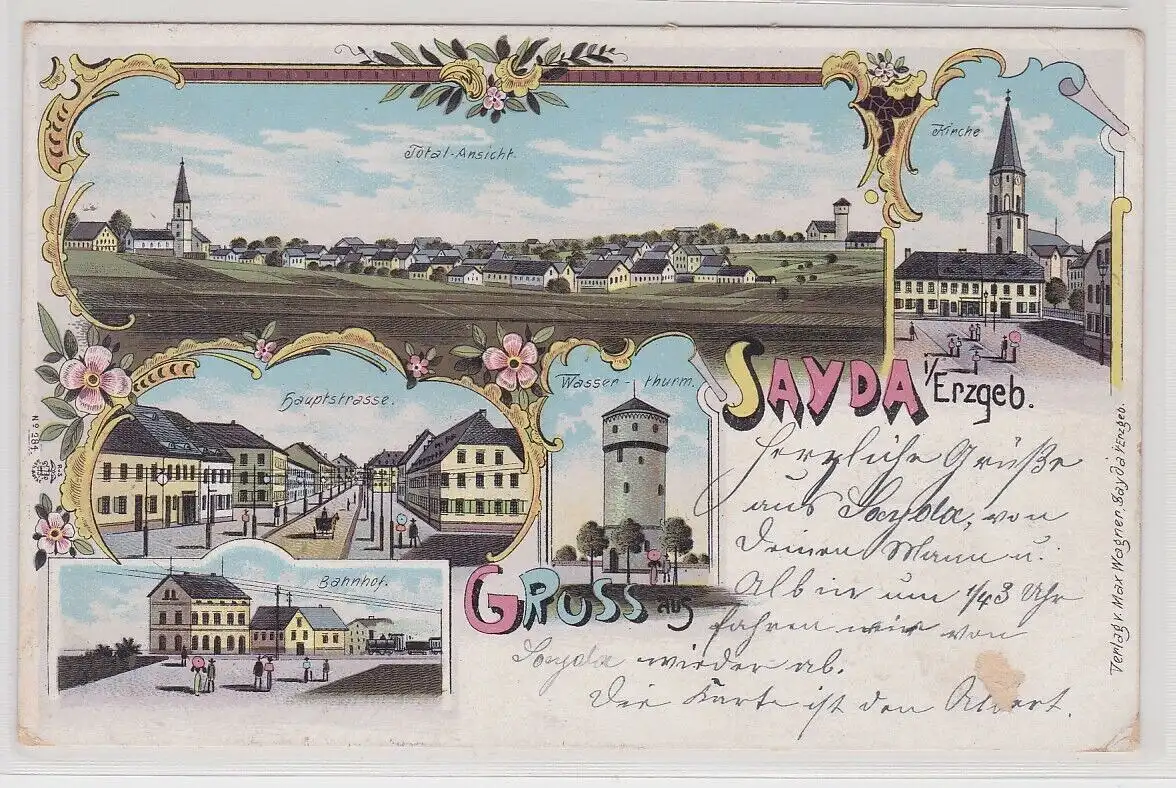 Total-Ansicht.
Kirche
Hauptstrasse.
Wasser-thurm.
SAYDA i/Erzgeb.
Bahnhof.
GRUSS aus
Herzliche Grüße
aus Sayda, von
Deinen Mann u.
Albin um 1/43 Uhr
fahren wir von
Sayda wieder ab.
Die Karte ist den Albert.
No 284.
Verlag v. Max Wagner, Sayda i/Erzgeb.